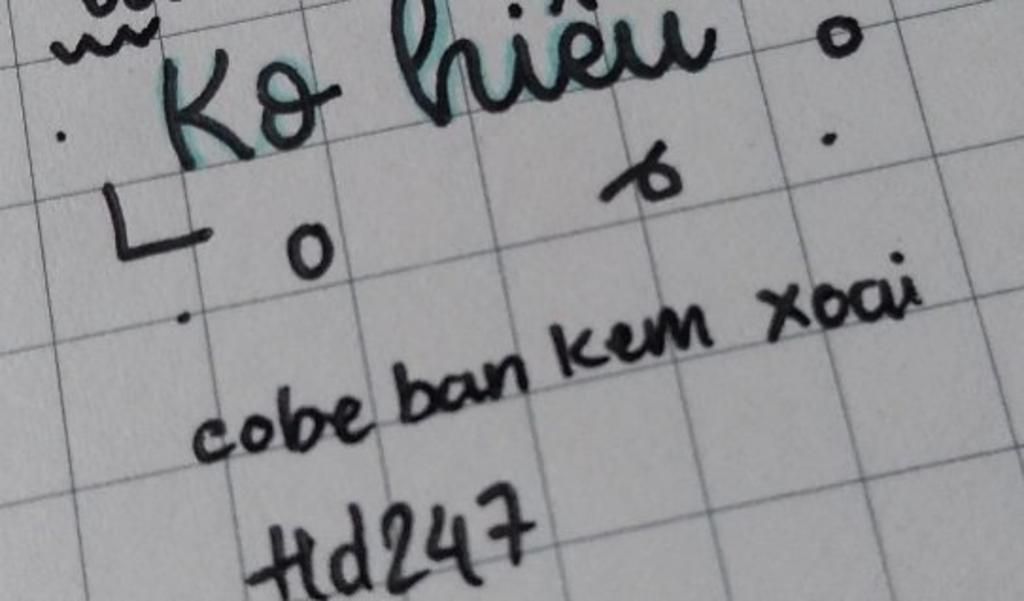 Ko hiểu
cobe ban kem xoai
Hd247